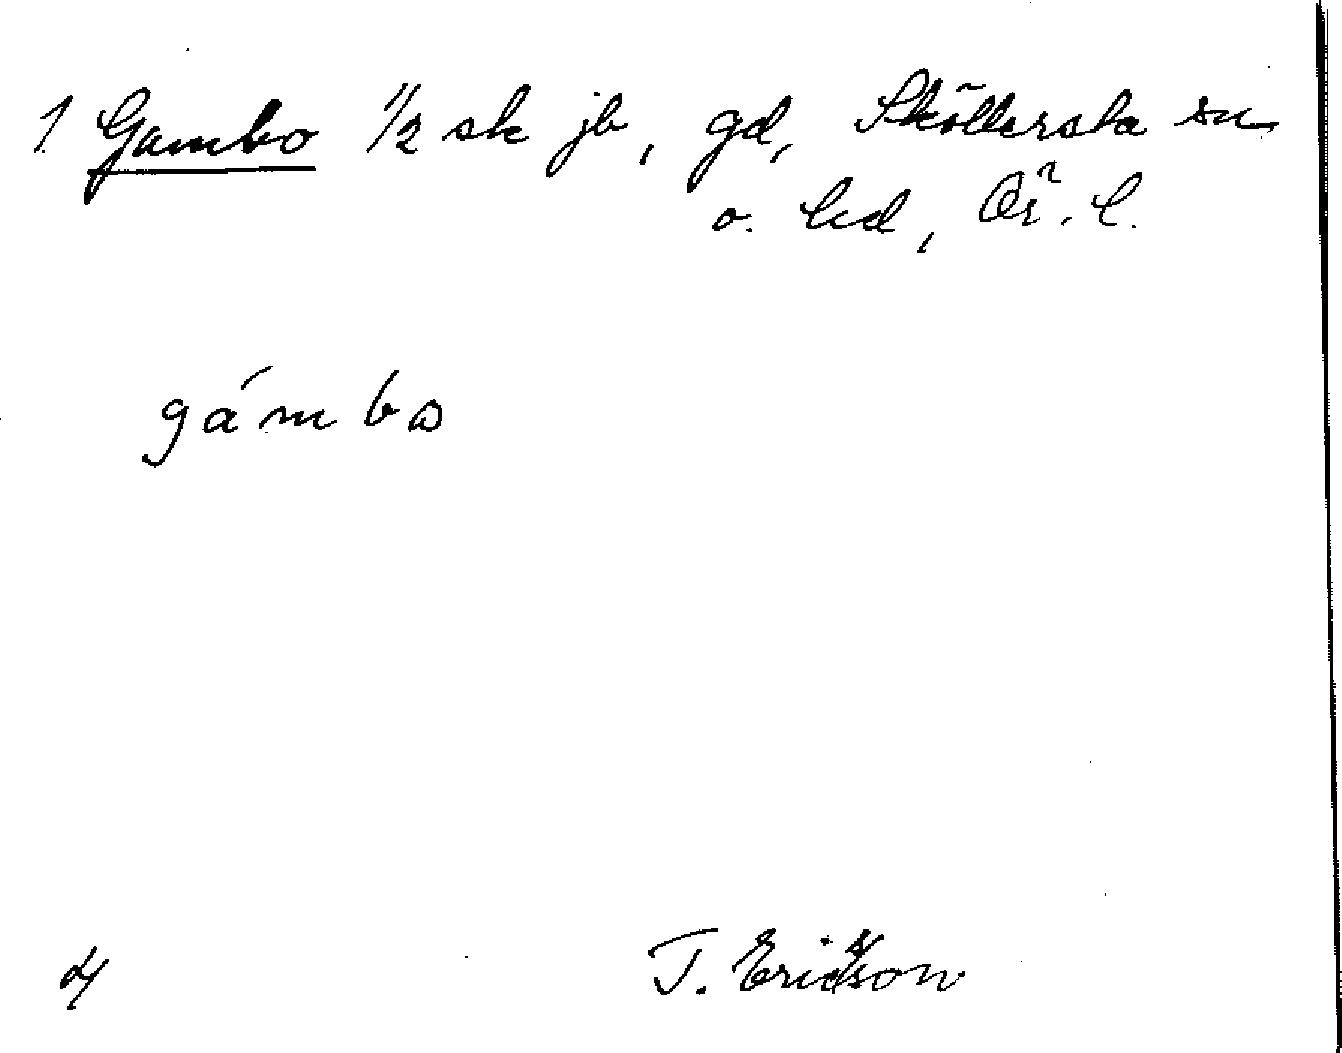 1. Gambo 1/2 sk jb, gd, Sköllersta sn
o. hd, Ör. l.
gámbo
4 T. Ericsson